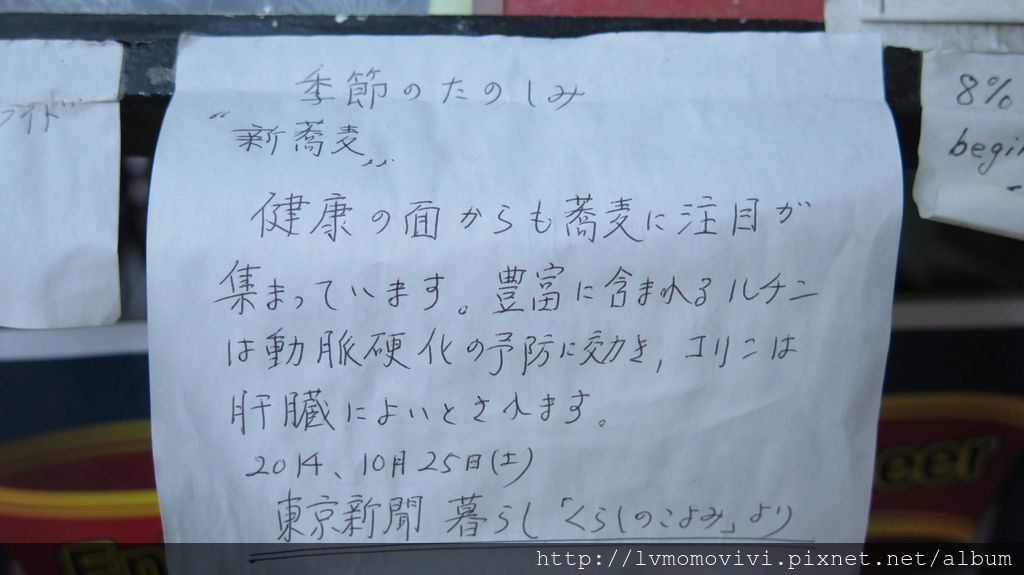 季節のたのしみ
“新蕎麦„
健康の面からも蕎麦に注目が
集まっています。豊富に含まれるルチン
は動脈硬化の予防に効き,コリンは
肝臓によいとされます。
2014、10月25日(土)
東京新聞 暮らし「くらしのこよみ」より
8%
begin
eer
http://lvmomovivi.pixnet.net/album